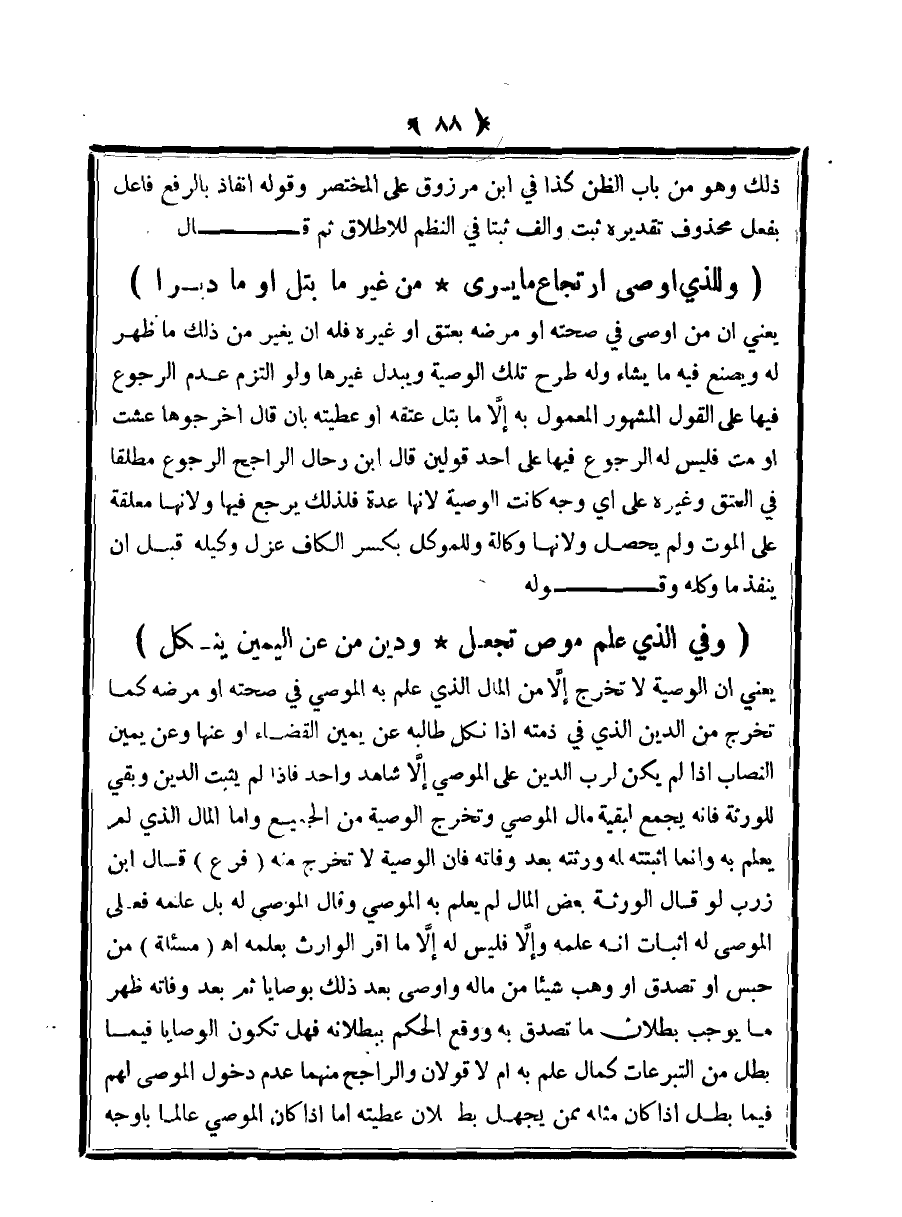 ﴿ ٨٨ ﴾
ذلك وهو من باب الظن كذا في ابن مرزوق على المختصر وقوله انفاذ بالرفع فاعل
بفعل محذوف تقديره ثبت والف ثبتا في النظم للاطلاق ثم قـــــال
( وللذي اوصى ارتجاع ما يرى * من غير ما بتل او ما دبرا )
يعني ان من اوصى في صحته او مرضه بعتق او غيره فله ان يغير من ذلك ما ظهر
له ويصنع فيه ما يشاء وله طرح تلك الوصية ويبدل غيرها ولو التزم عدم الرجوع
فيها على القول المشهور المعمول به إلَّا ما بتل عتقه او عطيته بان قال اخرجوها عشت
او مت فليس له الرجوع فيها على احد قولين قال ابن رحال الراجح الرجوع مطلقا
في العتق وغيره على اي وجه كانت الوصية لانها عدة فلذلك يرجع فيها ولانها معلقة
على الموت ولم يحصل ولانها وكالة وللموكل بكسر الكاف عزل وكيله قبل ان
ينفذ ما وكله وقـــــوله
( وفي الذي علم موص تجعل * ودين من عن اليمين ينكل )
يعني ان الوصية لا تخرج إلَّا من المال الذي علم به الموصي في صحته او مرضه كما
تخرج من الدين الذي في ذمته اذا نكل طالبه عن يمين القضاء او عنها وعن يمين
النصاب اذا لم يكن لرب الدين على الموصي إلَّا شاهد واحد فاذا لم يثبت الدين وبقي
للورثة فانه يجمع لبقية مال الموصي وتخرج الوصية من الجميع واما المال الذي لم
يعلم به وانما اثبتته له ورثته بعد وفاته فان الوصية لا تخرج منه ( فرع ) قال ابن
زرب لو قال الورثة بعض المال لم يعلم به الموصي وقال الموصى له بل علمه فعلى
الموصى له اثبات انه علمه وإلَّا فليس له إلَّا ما اقر الوارث بعلمه اه ( مسئلة ) من
حبس او تصدق او وهب شيئا من ماله واوصى بعد ذلك بوصايا ثم بعد وفاته ظهر
ما يوجب بطلان ما تصدق به ووقع الحكم ببطلانه فهل تكون الوصايا فيما
بطل من التبرعات كمال علم به ام لا قولان والراجح منهما عدم دخول الموصى لهم
فيما بطل اذا كان مثله ممن يجهل بطلان عطيته اما اذا كان الموصي عالما باوجه